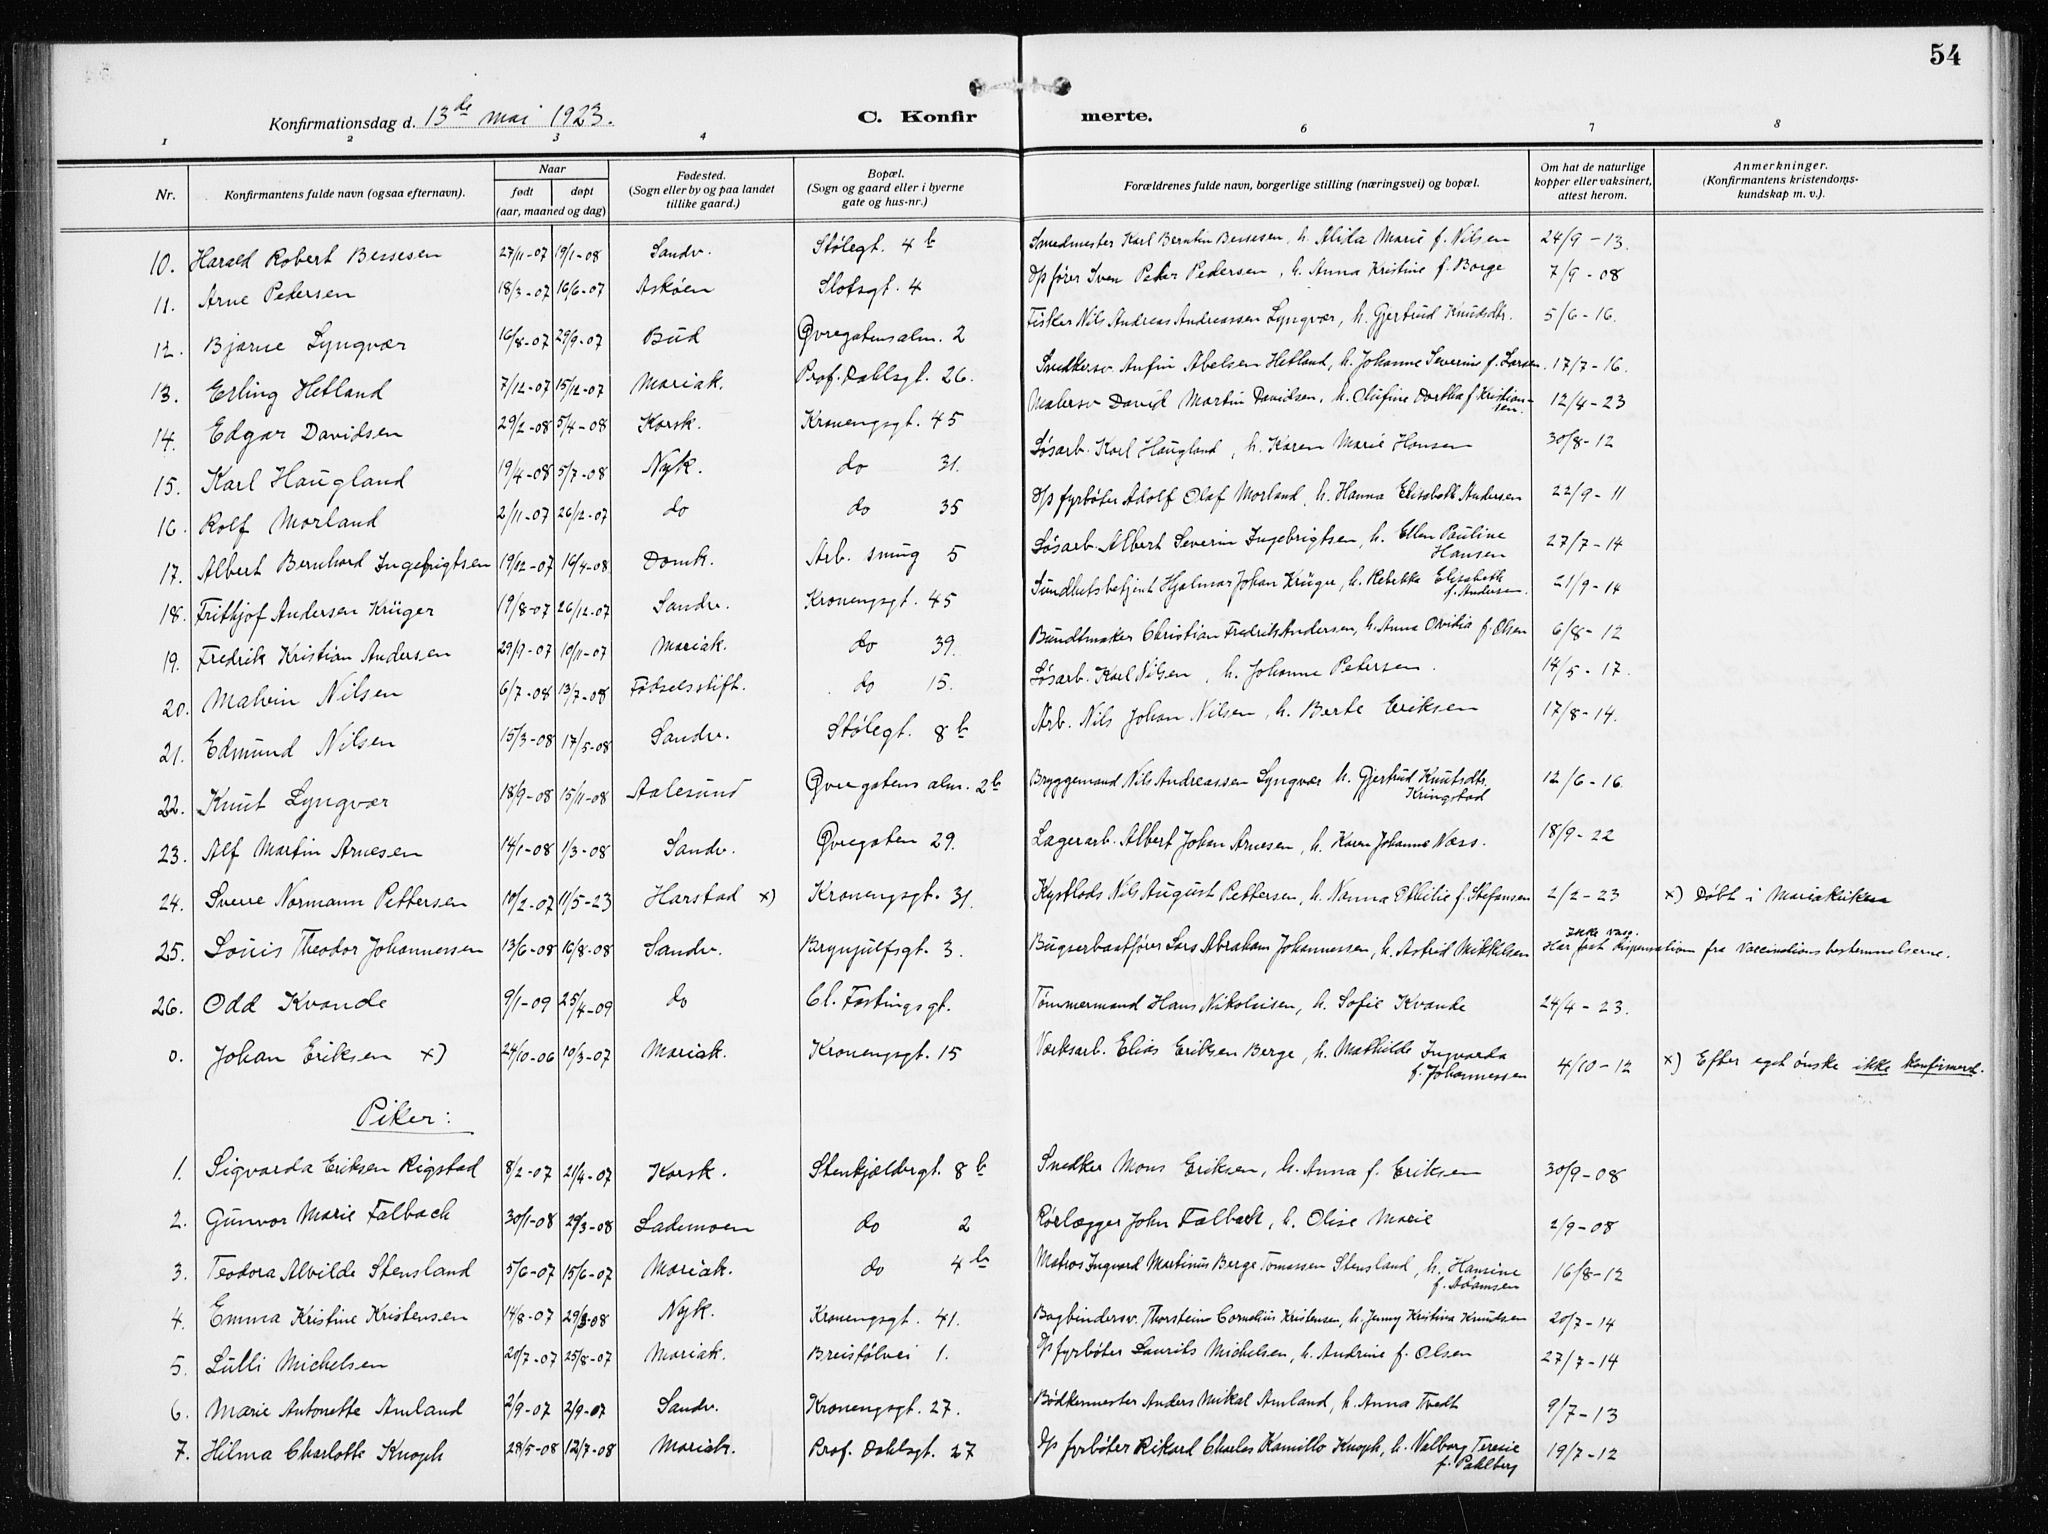 54
Konfirmationsdag d. 13de mai 1923.
C. Konfir merte.
1 2 3 4 6 7 8
Nr. Konfirmantens fulde navn (ogsaa efternavn). Naar født døpt (aar, maaned og dag) Fødested. (Sogn eller by og paa landet tillike gaard.) Bopæl. (Sogn og gaard eller i byerne gate og hus-nr.) Forældrenes fulde navn, borgerlige stilling (næringsvei) og bopæl. Om hat de naturlige kopper eller vaksinert, attest herom. Anmerkninger. (Konfirmantens kristendomskundskap m. v.).
10. Harald Robert Bessesen 27/11-07 19/1-08 Sandv. Stølegt. 4b Smedmester Karl Berntin Bessesen, h. Alida Marie f. Nilsen 24/9-13.
11. Arne Pedersen 18/3-07 16/6-07 Askøen Slotsgt. 4 D/p fører Sven Peter Pedersen, h. Anna Kristine f. Borge 7/9-08
12. Bjarne Lyngvær 16/8-07 29/9-07 Bud Øvregatensalm. 2 Fisker Nils Andreas Andreassen Lyngvær, h. Gjertrud Knudsdtr. 5/6-16.
13. Erling Hetland 7/12-07 15/12-07 Mariak. Prof. Dahlsgt. 26. Snedkersv. Anfin Abelsen Hetland, h. Johanne Severine f. Larsen. 17/7-16.
14. Edgar Davidsen 29/2-08 5/4-08 Korsk. Kronengsgt. 45 Malersv David Martin Davidsen, h. Olufine Dorthea f. Kristiansen. 12/4-23
15. Karl Haugland 19/4-08 5/7-08 Nyk. do 31. Løsarb. Karl Haugland, h. Karen Marie Hansen 30/8-12
16. Rolf Morland 2/11-07 26/12-07 do do 35 D/p fyrbøter Adolf Olaf Morland, h. Hanna Elisabeth Andersen 22/9-11
17. Albert Bernhard Ingebrigtsen 19/12-07 16/4-08 Domk. Arb. smug 5 Løsarb. Albert Severin Ingebrigtsen, h. Ellen Pauline Hansen 27/7-14
18. Frithjof Andersen Krüger 19/8-07 26/12-07 Sandv. Kronengsgt. 45 Sundhetsbetjent Hjalmar Johan Krüger, h. Rebekka Elisabeth f. Andersen. 21/9-14
19. Fredrik Kristian Andersen 29/7-07 10/11-07 Mariak. do 39. Bundtmaker Christian Fredrik Andersen, h. Anna Ovidia f. Olsen 6/8-12
20. Malvin Nilsen 6/7-08 13/7-08 Fødselsstift. do 15. Løsarb. Karl Nilsen, h. Johanne Petersen. 14/5-17.
21. Edmund Nilsen 15/3-08 17/5-08 Sandv. Stølegt. 8b Arb. Nils Johan Nilsen, h. Berte Eriksen 17/8-14.
22. Knut Lyngvær 18/9-08 15/11-08 Aalesund Øvregatens alm. 2b Bryggemand Nils Andreassen Lyngvær h. Gjertrud Knutsdtr. Kringstad 12/6-16
23. Alf Martin Arnesen 14/1-08 1/3-08 Sandv. Øvregaten 29. Lagerarb. Albert Johan Arnesen, h. Karen Johanne Næss. 18/9-22
24. Sverre Normann Pettersen 10/2-07 11/5-23 Harstad x) Kronengsgt. 31. Kystlods Nils August Pettersen, h. Nanna Othilie f. Stefansen 2/2-23 x) Døbt i Mariakirken
25. Louis Theodor Johannessen 13/6-08 16/8-08 Sandv. Brynjulfsgt. 3. Bugserbaatfører Lars Abraham Johannessen, h. Astrid Mikkelsen Ikke vacc. Har faat dispensation fra vaccinationsbestemmelserne.
26. Odd Kvande 9/1-09 25/4-09 do Cl. Fastingsgt. Tømmermand Hans Nikolaisen, h. Sofie Kvande 24/4-23.
0. Johan Eriksen x) 24/10-06 10/3-07 Mariak. Kronengsgt. 15 Verksarb. Elias Eriksen Berge, h. Mathilde Ingvarda f. Johannessen 4/10-12 x) Efter eget ønske ikke konfirmert.
Piker:
1. Sigvarda Eriksen Rigstad 8/2-07 21/4-07 Korsk. Stenkjeldergt. 8b Snedker Mons Eriksen, h. Anna f. Eriksen 30/9-08
2. Gunvor Marie Falbach 30/1-08 29/3-08 Lademoen do 2 Rørlægger John Falback, h. Olise Marie 2/9-08
3. Teodora Alvilde Stensland 5/6-07 15/6-07 Mariak. do 4b Matros Ingvard Martinus Berge Tomassen Stensland, h. Hansine f. Adamsen 16/8-12
4. Emma Kristine Kristensen 14/8-07 29/3-08 Nyk. Kronengsgt. 41. Bogbindersv. Thorstein Cornelius Kristensen, h. Jenny Kristina Knudsen 20/7-14
5. Lulli Michelsen 20/7-07 25/8-07 Mariak. Breistølvei 1. D/p fyrbøter Laurits Michelsen, h. Andrine f. Olsen 27/7-14
6. Marie Antonette Amland 2/9-07 2/9-07 Sandv. Kronengsgt. 27. Bødkermester Anders Mikal Amland, h. Anna Tvedt 9/7-13
7. Hilma Charlotte Knoph 28/5-08 12/7-08 Mariak. Prof. Dahlsgt. 27 D/p fyrbøter Rikard Charles Kamillo Knoph, h. Valborg Teresie f. Pahlberg 19/7-12